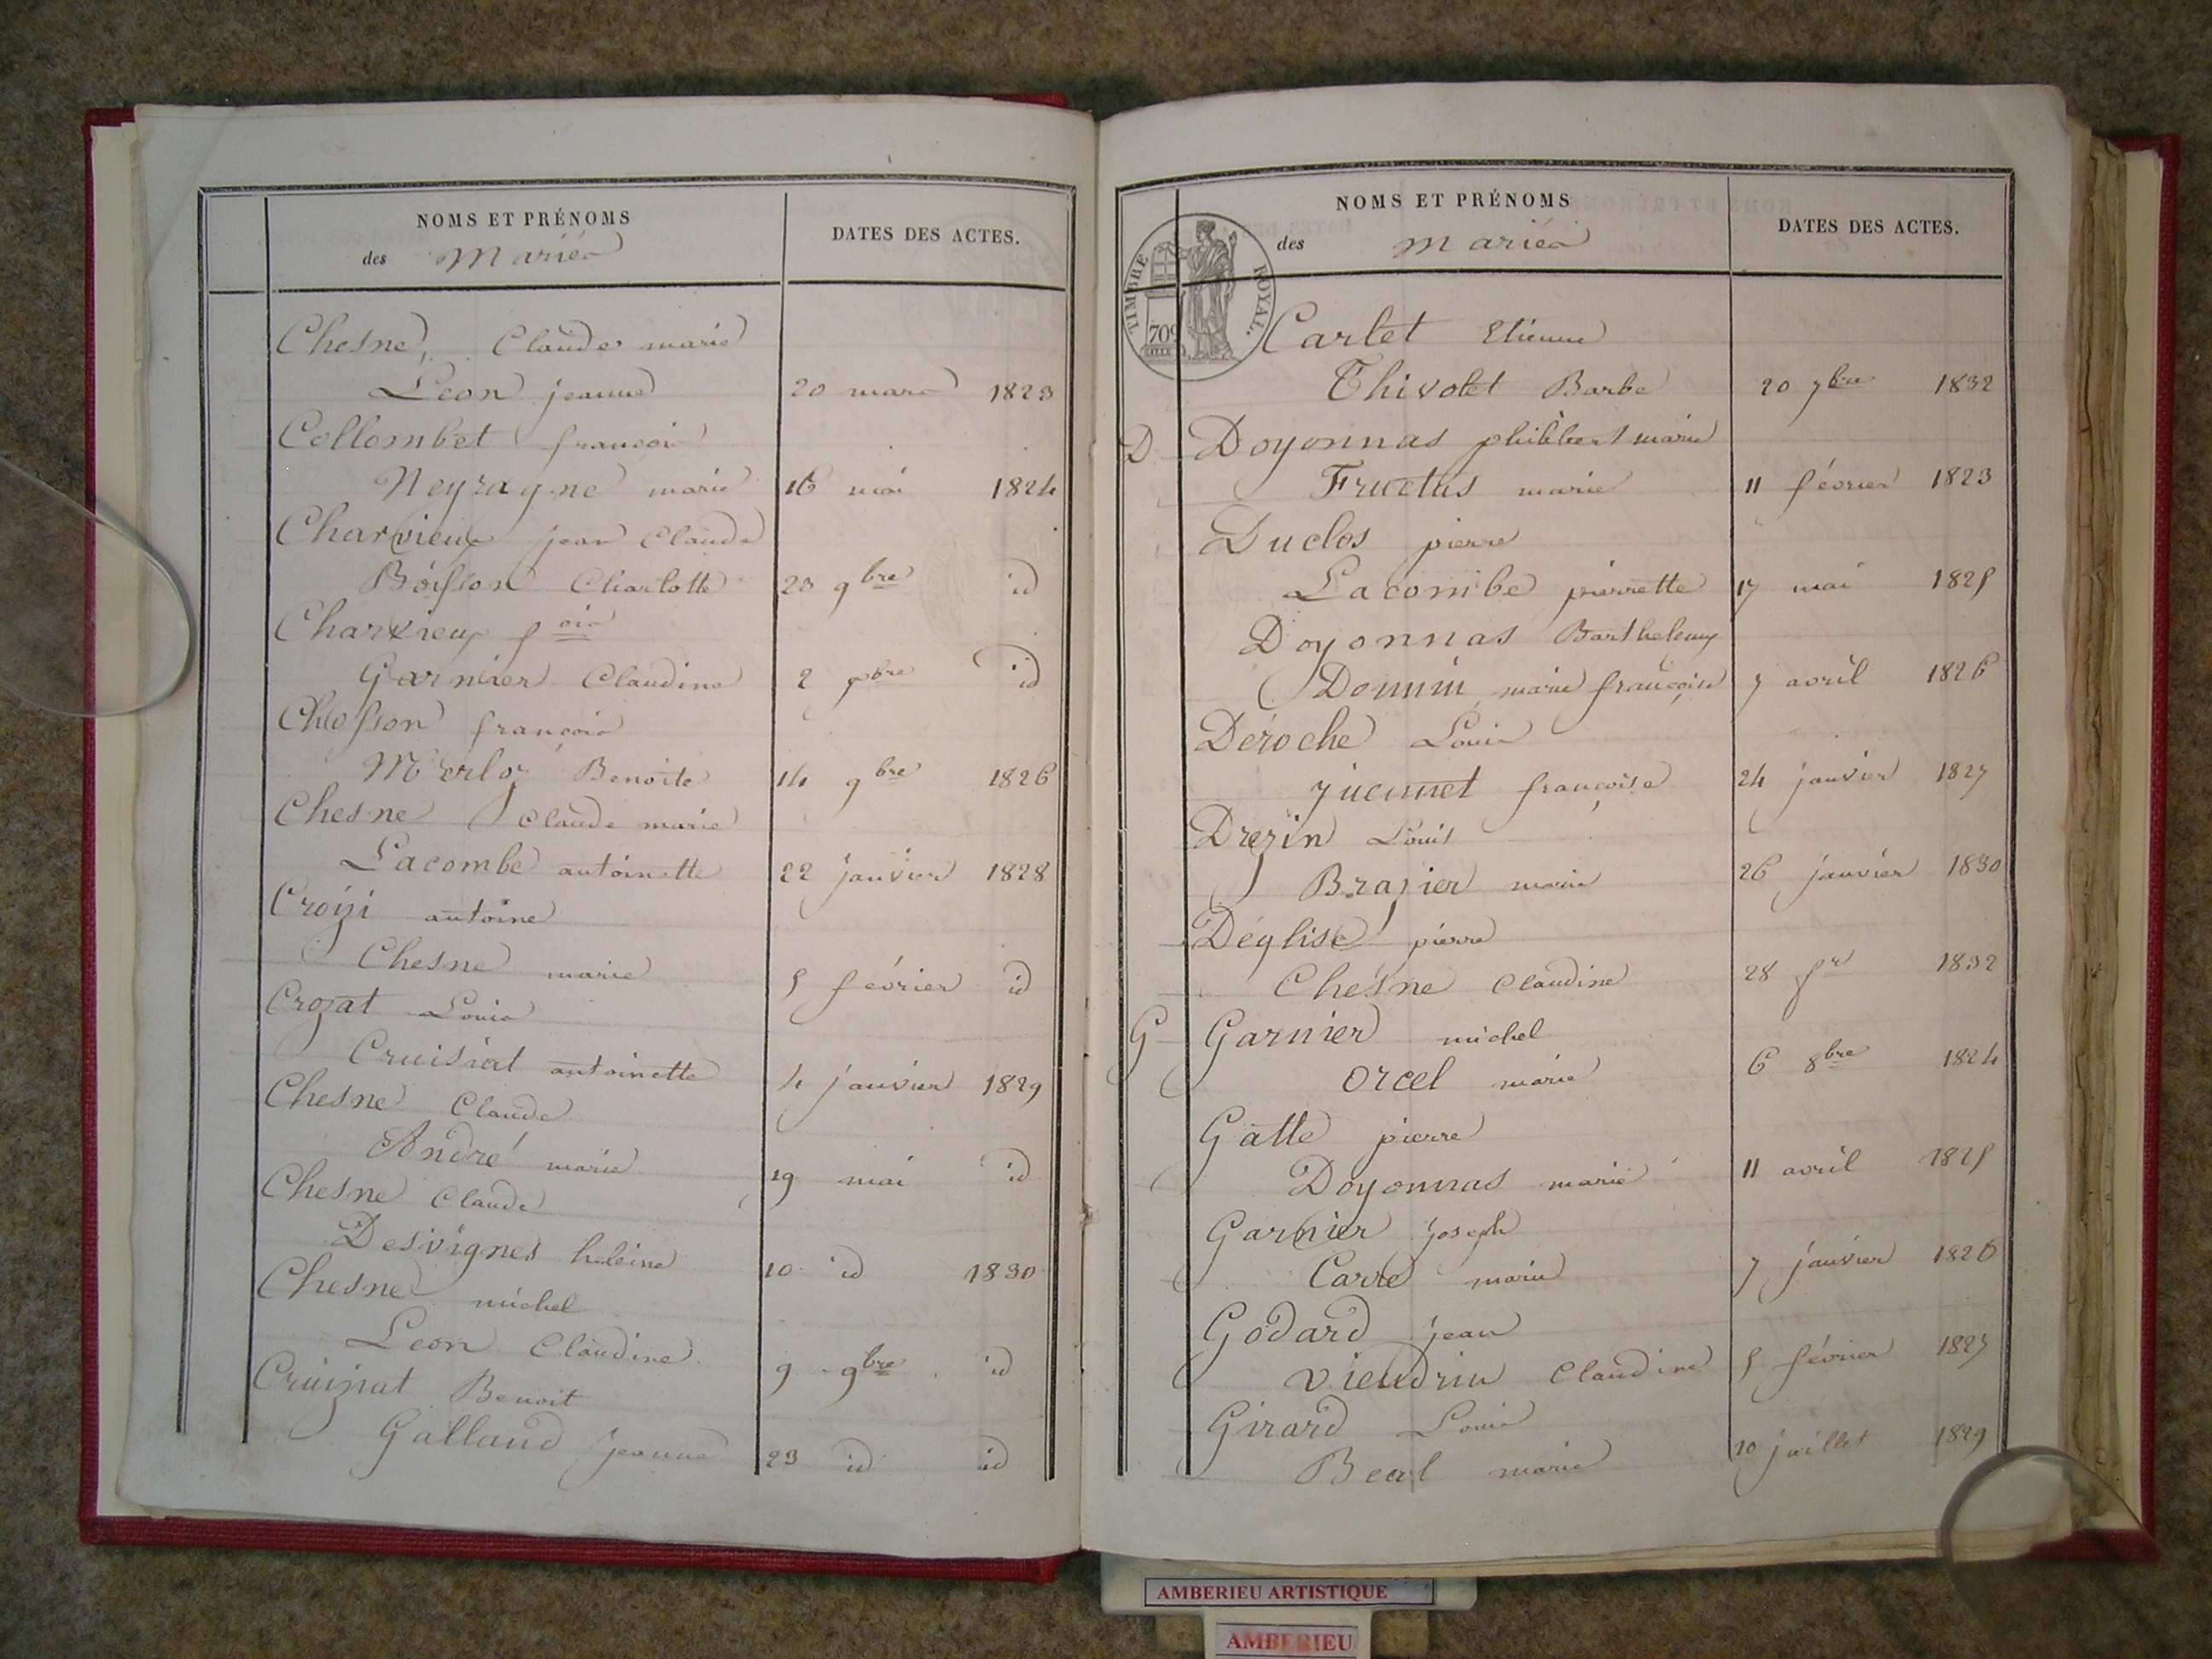 NOMS ET PRÉNOMS
des Mariés
DATES DES ACTES.
Chesne, Claude marie
Leon jeanne 20 mars 1823
Collombet françois
Neyragne marie 16 mai 1824
Charvieux jean Claude
Boisson Charlotte 23 9bre id
Charvieux fois
Garnier Claudine 2 id
Chosson françois
Merloz Benoite 14 9bre 1826
Chesne Claude marie
Lacombe antoinette 22 janvier 1828
Croizi antoine
Chesne marie 5 février id
Crozat Louis
Cruisiat antoinette 4 janvier 1829
Chesne Claude
André marie 19 mai id
Chesne Claude
Desvignes heleine 10 id 1830
Chesne michel
Leon Claudine 9 9bre id
Cruiziat Benoit
Galland Jeanne 23 id id
NOMS ET PRÉNOMS
des mariés
DATES DES ACTES.
TIMBRE ROYAL.
70c
Carlet Etienne
Thivolet Barbe 20 7bre 1832
D Doyonnas philibert marie
Fructus marie 11 février 1823
Duclos pierre
Lacombe pierrette 17 mai 1825
Doyonnas Barthelemy
Donnin marie françoise 7 avril 1826
Déroche Louis
françoise 24 janvier 1827
Drezin Louis
Brazier marie 26 janvier 1830
Déglise pierre
Chesne Claudine 28 fr 1832
G Garnier michel
Orcel marie 6 8bre 1824
Gatte pierre
Doyonnas marie 11 avril 1825
Garnier Joseph
Carre marie 7 janvier 1826
Godard jean
Claudine 5 février 1827
Girard Louis
Beal marie 10 juillet 1829
AMBERIEU ARTISTIQUE
AMBERIEU